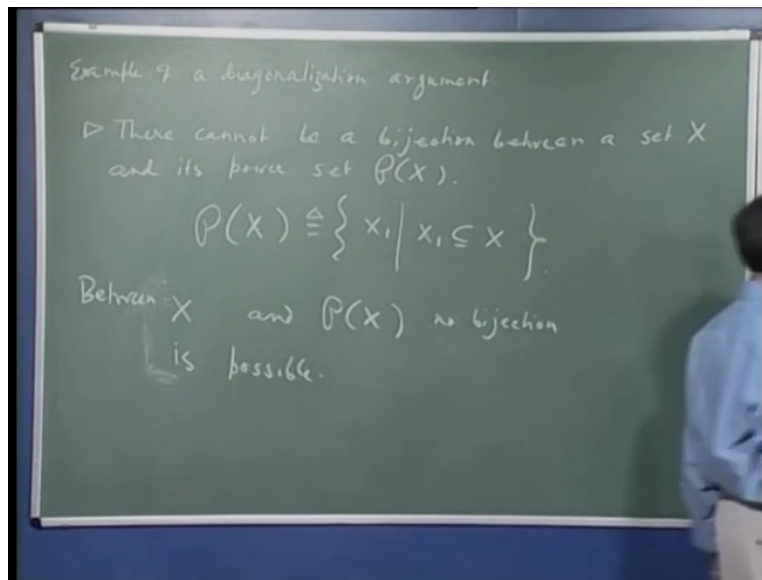 Example of a diagonalization argument.
▷ There cannot be a bijection between a set X
and its power set P(X).
P(X) ≜ { X₁ | X₁ ⊆ X }.
Between X and P(X) no bijection
is possible.